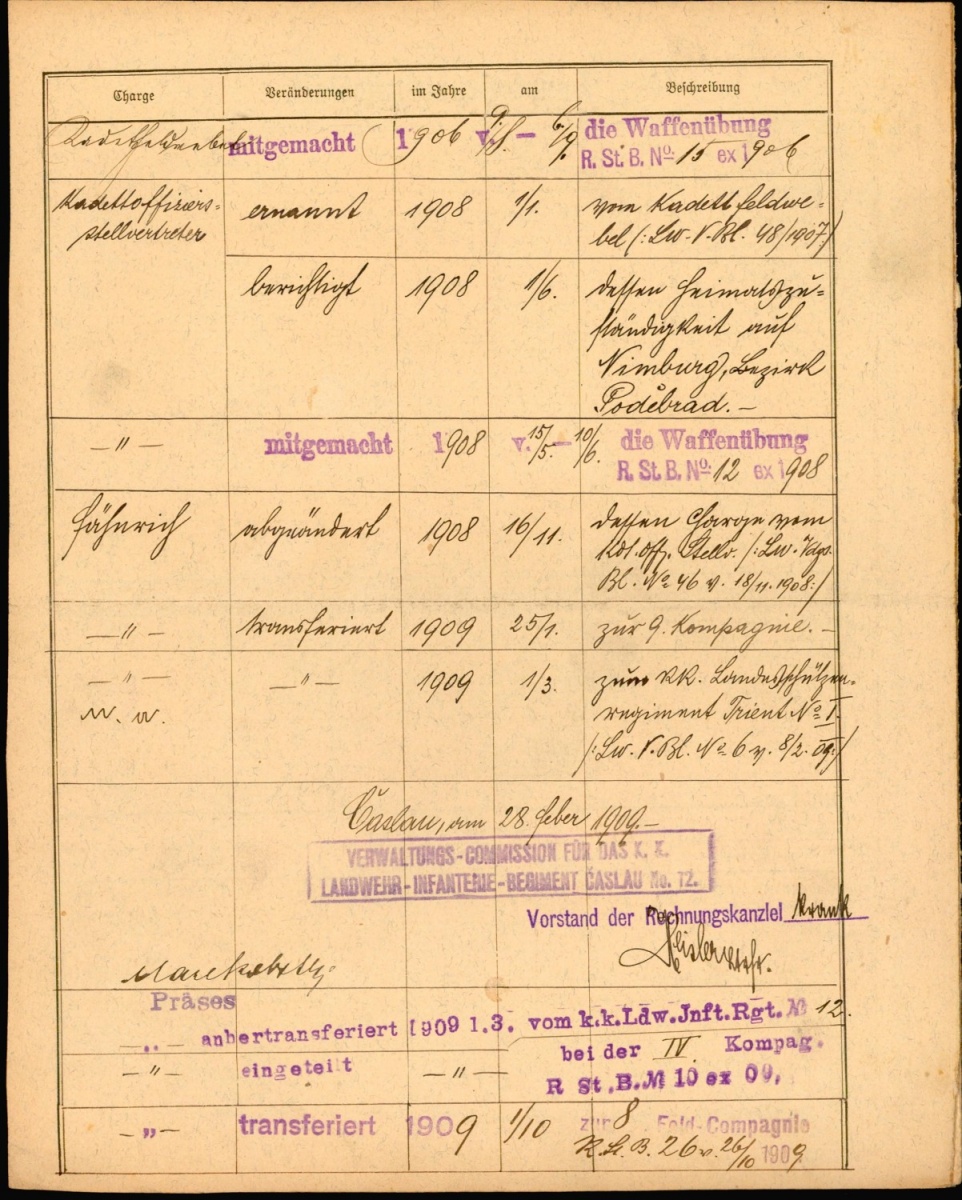 Charge Veränderungen im Jahre am Beschreibung
mitgemacht 1906 v. 9/8. – 6/9. die Waffenübung
R. St. B. No. 15 ex 1906
Kadettoffiziers- ernannt 1908 1/1. vom Kadettfeldwe-
stellvertreter bel (: Lw. V. Bl. 48/1907:)
berichtigt 1908 1/6. dessen Heimatszu-
ständigkeit auf
Nimburg, Bezirk
Poděbrad. –
– " – mitgemacht 1908 v. 15/5. – 10/6. die Waffenübung
R. St. B. No. 12 ex 1908
Fähnrich abgeändert 1908 16/11. dessen Charge vom
Kdt. off. Stellv. (: Lw. Vdgs.
Bl. No 46 v. 18/11. 1908:)
– " – transferiert 1909 25/1. zur 9. Kompagnie. –
– " – – " – 1909 1/3. zum kk. Landesschützen-
n. a. regiment Trient No I.
(: Lw. V. Bl. No 6 v. 8/2. 09:)
Časlau, am 28. Feber 1909. –
VERWALTUNGS-COMMISSION FÜR DAS K. K.
LANDWEHR-INFANTERIE-REGIMENT ČASLAU No. 12.
Vorstand der Rechnungskanzlei krank
Präses
– „ – anhertransferiert 1909 1.3. vom k.k.Ldw.Jnft.Rgt.№ 12.
– " – eingeteilt – " – bei der IV Kompag.
R St.B.№ 10 ex 09,
– „ – transferiert 1909 1/10 zur 8 Feld-Compagnie
R. St. B. 26 v. 26/10 1909